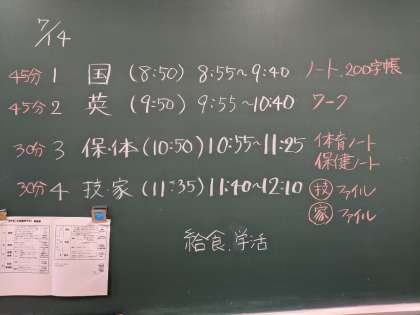 7/14
45分 1 国 (8:50) 8:55~9:40 ノート、200字帳
45分 2 英 (9:50) 9:55~10:40 ワーク
30分 3 保・体 (10:50) 10:55~11:25 体育ノート
保健ノート
30分 4 技・家 (11:35) 11:40~12:10 技 ファイル
家 ファイル
給食、学活